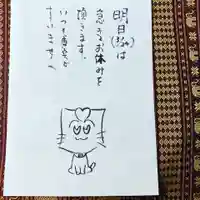 明日(3/24)は
急きょお休みを
頂きます。
いつも直前で
すいません